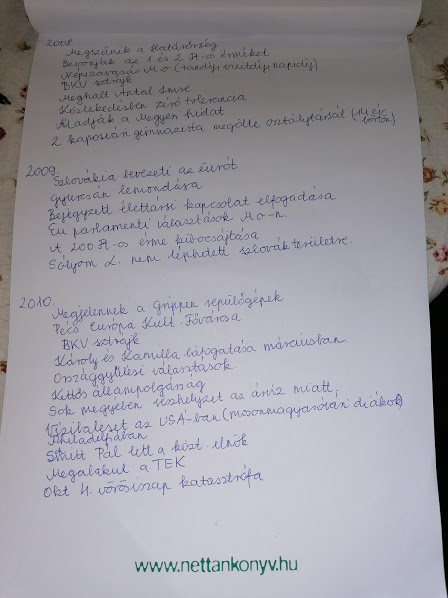 2008
Megszűnik a Határőrség
Bevonják az 1 és 2 Ft-os érméket
Népszavazás M.o (tandíj, vizitdíj, napidíj)
BKV sztrájk
Meghalt Antal Imre
Közlekedésben zéró tolerancia
Átadják a Megyeri hidat
2 kaposvári gimnazista megölte osztálytársát (14 év börtön)
2009
Szlovákia bevezeti az eurót
Gyurcsán lemondása
Bejegyzett élettársi kapcsolat elfogadása
Eu parlamenti választások M.o-n.
A 200 Ft-os érme kibocsájtása
Sólyom L. nem léphetett szlovák területre.
2010
Megjelennek a Grippen repülőgépek
Pécs Európa Kult. Fővárosa
BKV sztrájk
Károly és Kamilla látogatása márciusban
Országgyűlési választások.
Kettős állampolgárság
Sok megyében vészhelyzet az árvíz miatt.
Vízibaleset az USA-ban (mosonmagyaróvári diákok)
Philadelfiában
Smitt Pál lett a közt. elnök
Megalakul a TEK
Okt 4. vörösiszap katasztrófa
www.nettankonyv.hu